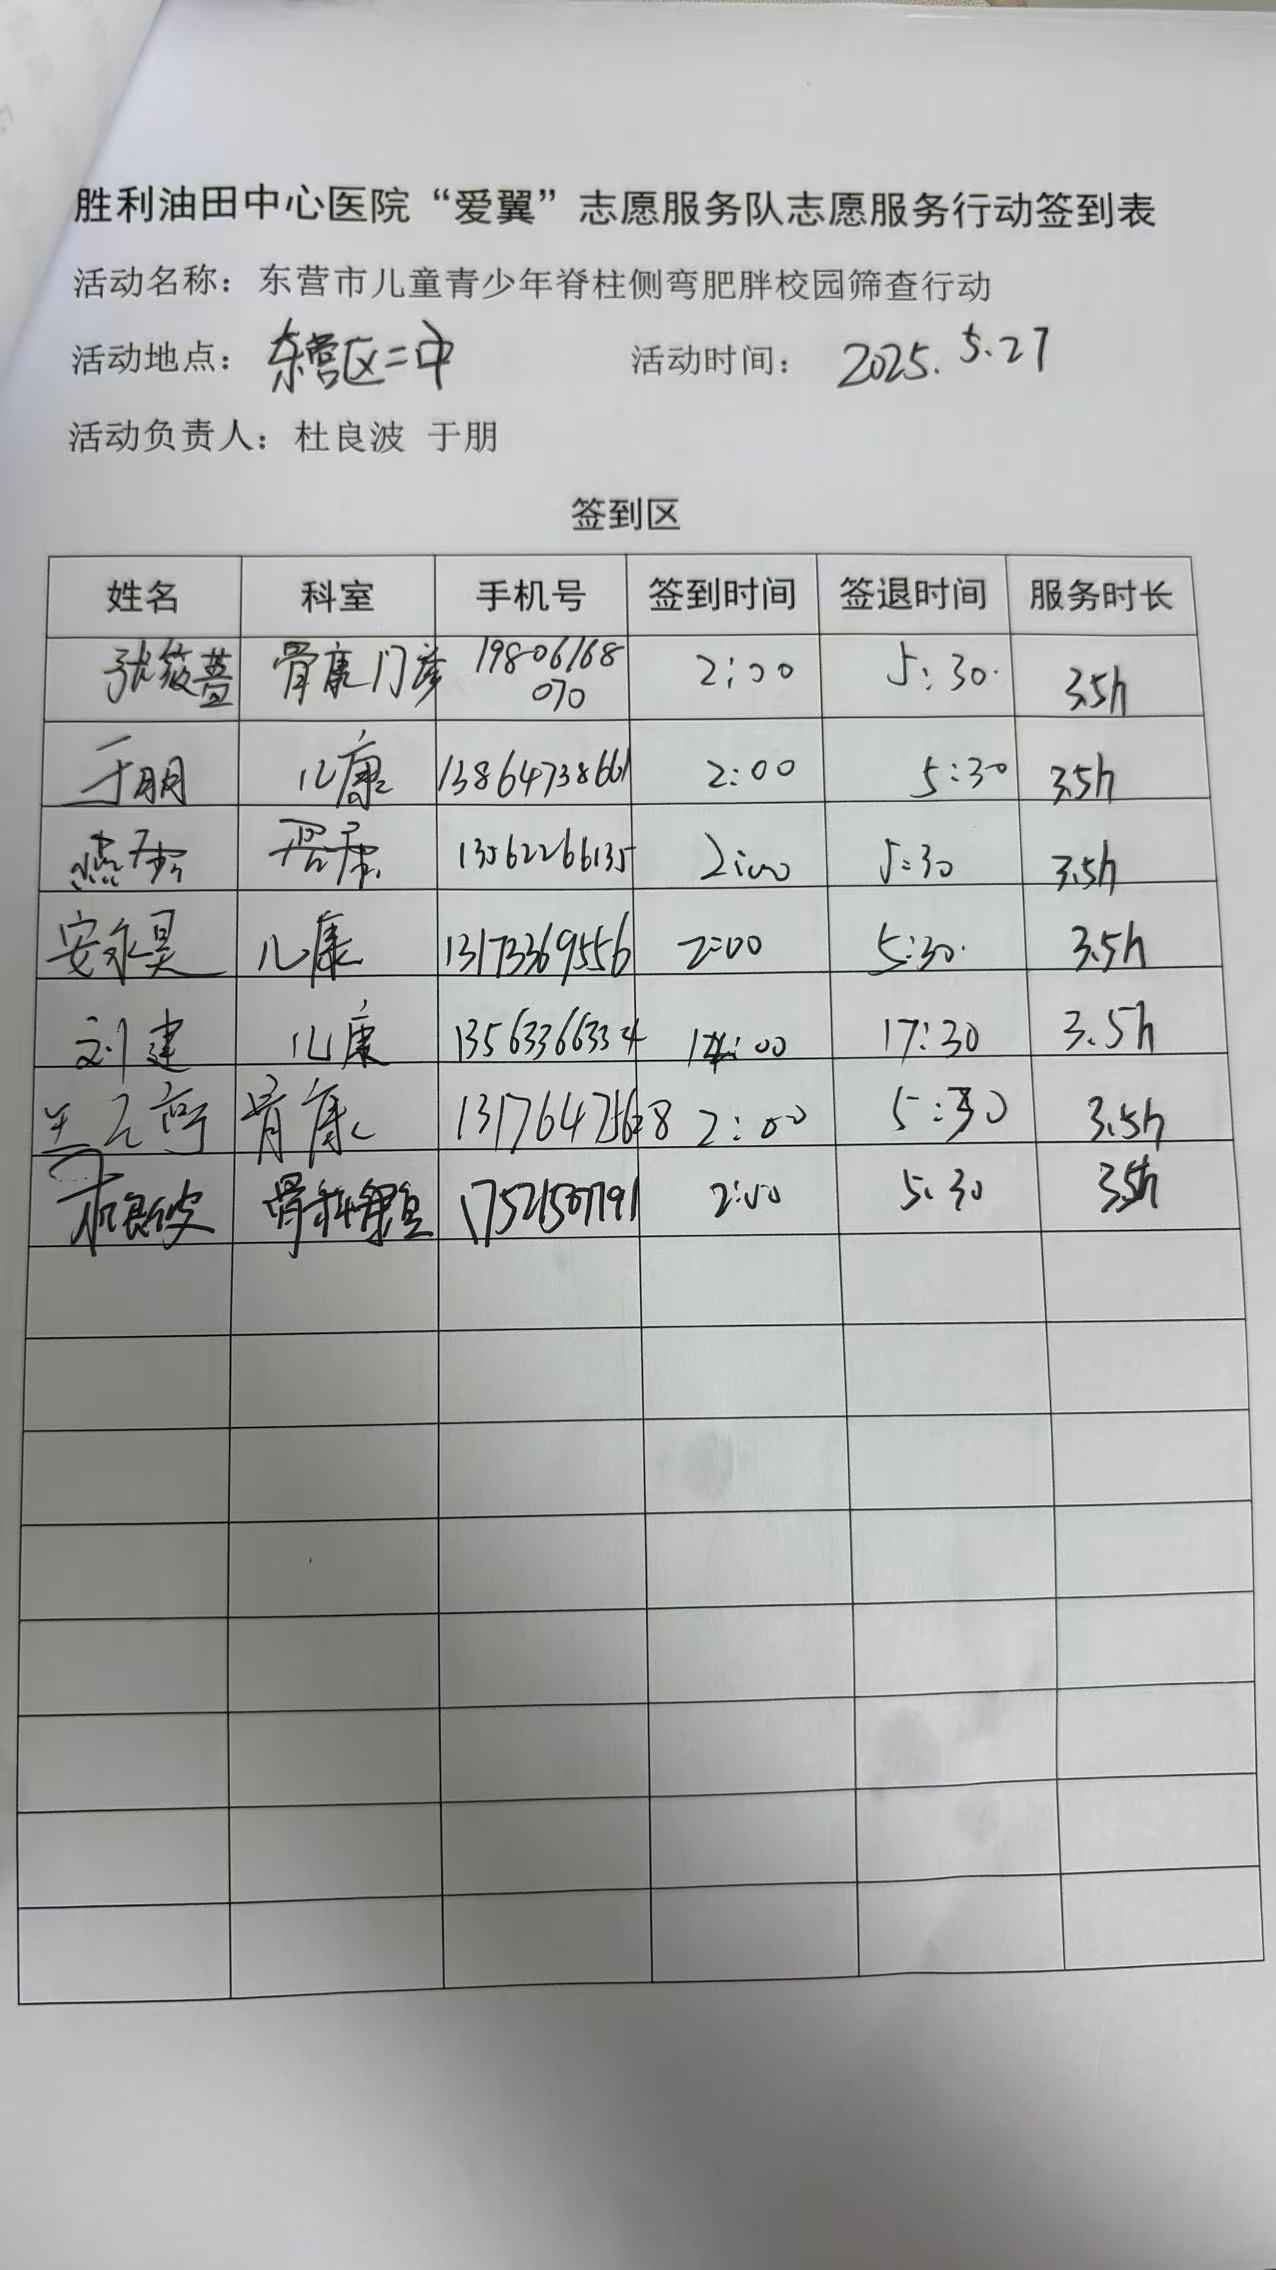 胜利油田中心医院“爱翼”志愿服务队志愿服务行动签到表
活动名称：东营市儿童青少年脊柱侧弯肥胖校园筛查行动
活动地点：东营区二中 活动时间：2025.5.27
活动负责人：杜良波 于朋
签到区
姓名 科室 手机号 签到时间 签退时间 服务时长
张筱萱 骨康门诊 19806168070 2:00 5:30 3.5h
于朋 儿康 13864738661 2:00 5:30 3.5h
燕 13562266135 2:00 5:30 3.5h
安永昊 儿康 13173369556 2:00 5:30 3.5h
刘建 儿康 13563366334 14:00 17:30 3.5h
骨康 2:00 5:30 3.5h
杜良波 2:00 5:30 3.5h